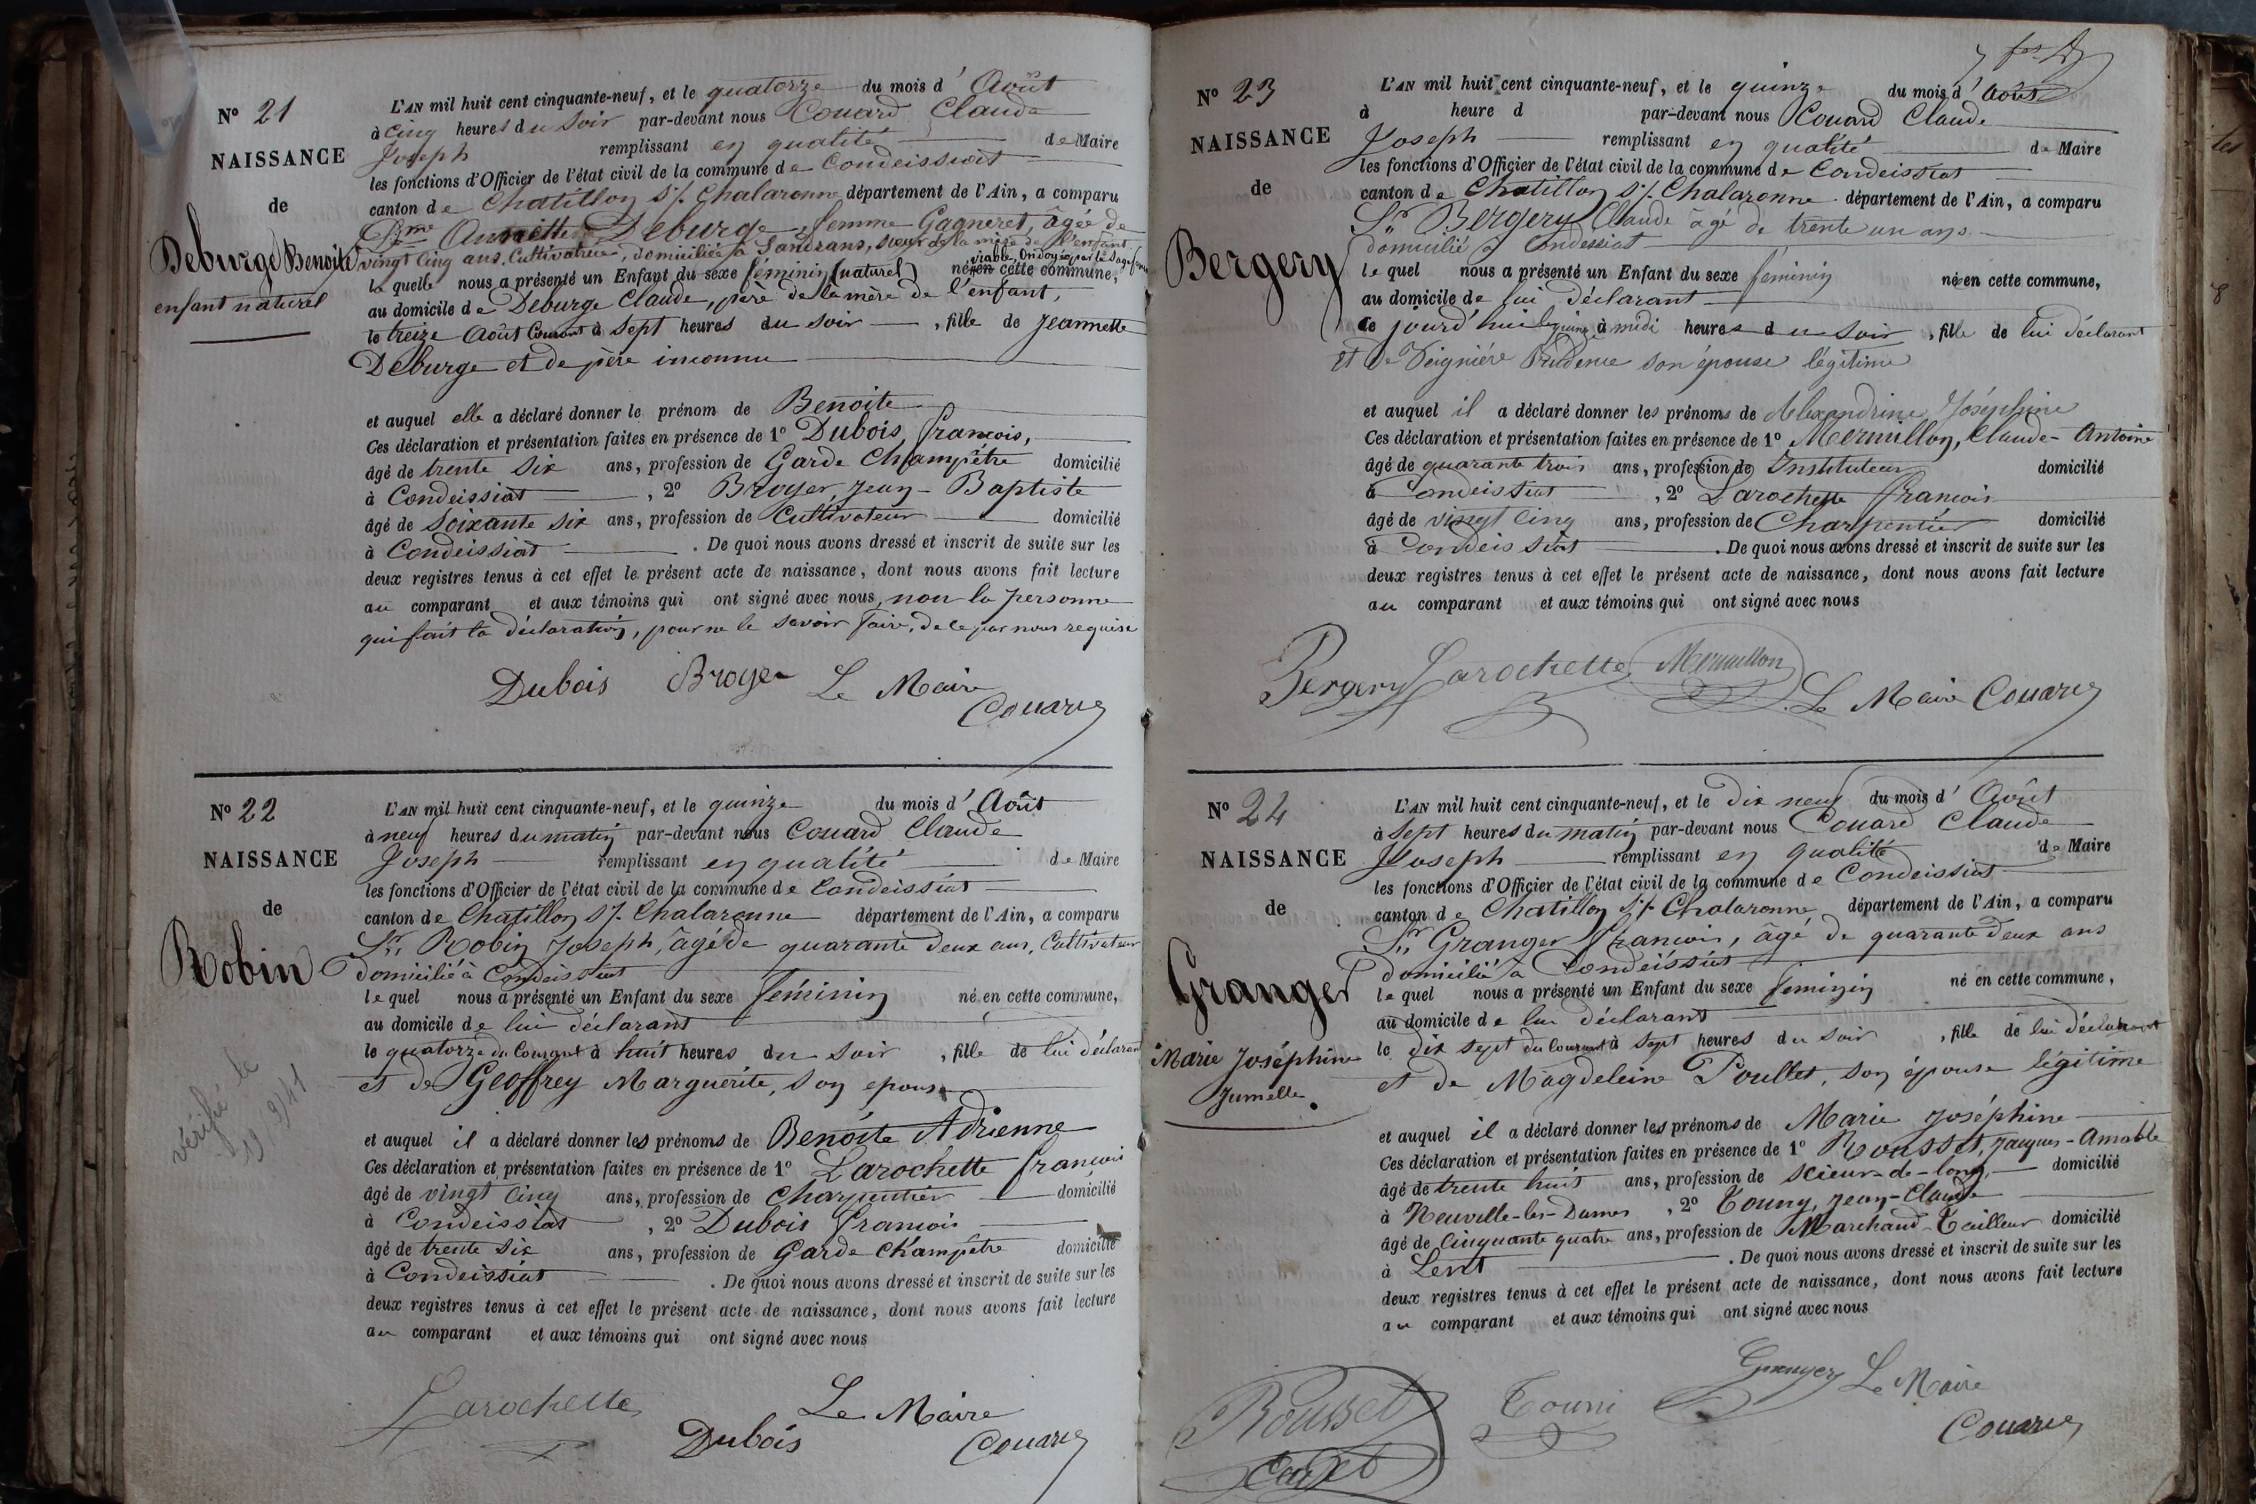 N° 21
NAISSANCE
de
Deburge Benoite
enfant naturel
L'AN mil huit cent cinquante-neuf, et le quatorze du mois d'Août
à cinq heures du soir par-devant nous Couard Claude
Joseph remplissant en qualité de Maire
les fonctions d'Officier de l'état civil de la commune de Condeissiat
canton de Chatillon s/. Chalaronne département de l'Ain, a comparu
Dme Annette Deburge, femme Gagneret, âgée de
vingt cinq ans, Cultivatrice, domiciliée à Sandrans, soeur de la mère de l'enfant
viable, Ondoyé par la Sage femme
la quelle nous a présenté un Enfant du sexe féminin (naturel) né en cette commune,
au domicile de Deburge Claude, père de la mère de l'enfant,
le treize Août Courant à sept heures du soir, fille de Jeannette
Deburge et de père inconnu
et auquel elle a déclaré donner le prénom de Benoite
Ces déclaration et présentation faites en présence de 1° Dubois, françois,
âgé de trente six ans, profession de Garde Champêtre domicilié
à Condeissiat, 2° Broyer, Jean-Baptiste
âgé de soixante six ans, profession de Cultivateur domicilié
à Condeissiat. De quoi nous avons dressé et inscrit de suite sur les
deux registres tenus à cet effet le présent acte de naissance, dont nous avons fait lecture
au comparant et aux témoins qui ont signé avec nous, non la personne
qui fait la déclaration, pour ne le savoir faire, de ce par nous requise
Dubois Broyer Le Maire
Couard
N° 22
NAISSANCE
de
Robin
vérifié le
L'AN mil huit cent cinquante-neuf, et le quinze du mois d'Août
à neuf heures du matin par-devant nous Couard Claude
Joseph remplissant en qualité de Maire
les fonctions d'Officier de l'état civil de la commune de Condeissiat
canton de Chatillon s/. Chalaronne département de l'Ain, a comparu
Sr. Robin Joseph, âgé de quarante deux ans, Cultivateur
domicilié à Condeissiat
lequel nous a présenté un Enfant du sexe féminin né en cette commune,
au domicile de lui déclarant
le quatorze du Courant à huit heures du soir, fille de lui déclarant
et de Geoffrey Marguerite, son epouse
et auquel il a déclaré donner les prénoms de Benoîte Adrienne
Ces déclaration et présentation faites en présence de 1° Larochette françois
âgé de vingt cinq ans, profession de Charpentier domicilié
à Condeissiat, 2° Dubois françois
âgé de trente six ans, profession de Garde Champêtre domicilié
à Condeissiat. De quoi nous avons dressé et inscrit de suite sur les
deux registres tenus à cet effet le présent acte de naissance, dont nous avons fait lecture
au comparant et aux témoins qui ont signé avec nous
Larochette Le Maire
Dubois Couard
N° 23
NAISSANCE
de
Bergery
L'AN mil huit cent cinquante-neuf, et le quinze du mois d'Août
à heure d par-devant nous Couard Claude
Joseph remplissant en qualité de Maire
les fonctions d'Officier de l'état civil de la commune de Condeissiat
canton de Chatillon s/. Chalaronne département de l'Ain, a comparu
Sr Bergery Claude âgé de trente un ans
domicilié à Condeissiat
lequel nous a présenté un Enfant du sexe féminin né en cette commune,
au domicile de lui déclarant
ce jourd'hui quinze à midi heures du soir, fille de lui déclarant
et de Veignière Prudence son épouse légitime
et auquel il a déclaré donner les prénoms de Alexandrine Joséphine
Ces déclaration et présentation faites en présence de 1° Mermillon, Claude-Antoine
âgé de quarante trois ans, profession de Instituteur domicilié
à Condeissiat, 2° Larochette françois
âgé de vingt cinq ans, profession de Charpentier domicilié
à Condeissiat. De quoi nous avons dressé et inscrit de suite sur les
deux registres tenus à cet effet le présent acte de naissance, dont nous avons fait lecture
au comparant et aux témoins qui ont signé avec nous
Bergery Larochette Mermillon
Le Maire Couard
N° 24
NAISSANCE
de
Granger
Marie Joséphine
Jumelle.
L'AN mil huit cent cinquante-neuf, et le dix neuf du mois d'Août
à sept heures du matin par-devant nous Couard Claude
Joseph remplissant en qualité de Maire
les fonctions d'Officier de l'état civil de la commune de Condeissiat
canton de Chatillon s/. Chalaronne département de l'Ain, a comparu
Sr Granger françois, âgé de quarante deux ans
domicilié à Condeissiat
lequel nous a présenté un Enfant du sexe féminin né en cette commune,
au domicile de lui déclarant
le dix sept du Courant à sept heures du soir, fille de lui déclarant
et de Magdeleine Poullet, son épouse légitime
et auquel il a déclaré donner les prénoms de Marie Joséphine
Ces déclaration et présentation faites en présence de 1° Rousset, Jacques-Amable
âgé de trente huit ans, profession de scieur-de-long domicilié
à Neuville-les-Dames, 2° Touny, Jean-Claude
âgé de Cinquante quatre ans, profession de Marchand-Tailleur domicilié
à Lent. De quoi nous avons dressé et inscrit de suite sur les
deux registres tenus à cet effet le présent acte de naissance, dont nous avons fait lecture
au comparant et aux témoins qui ont signé avec nous
Rousset Touni Granger Le Maire
Couard